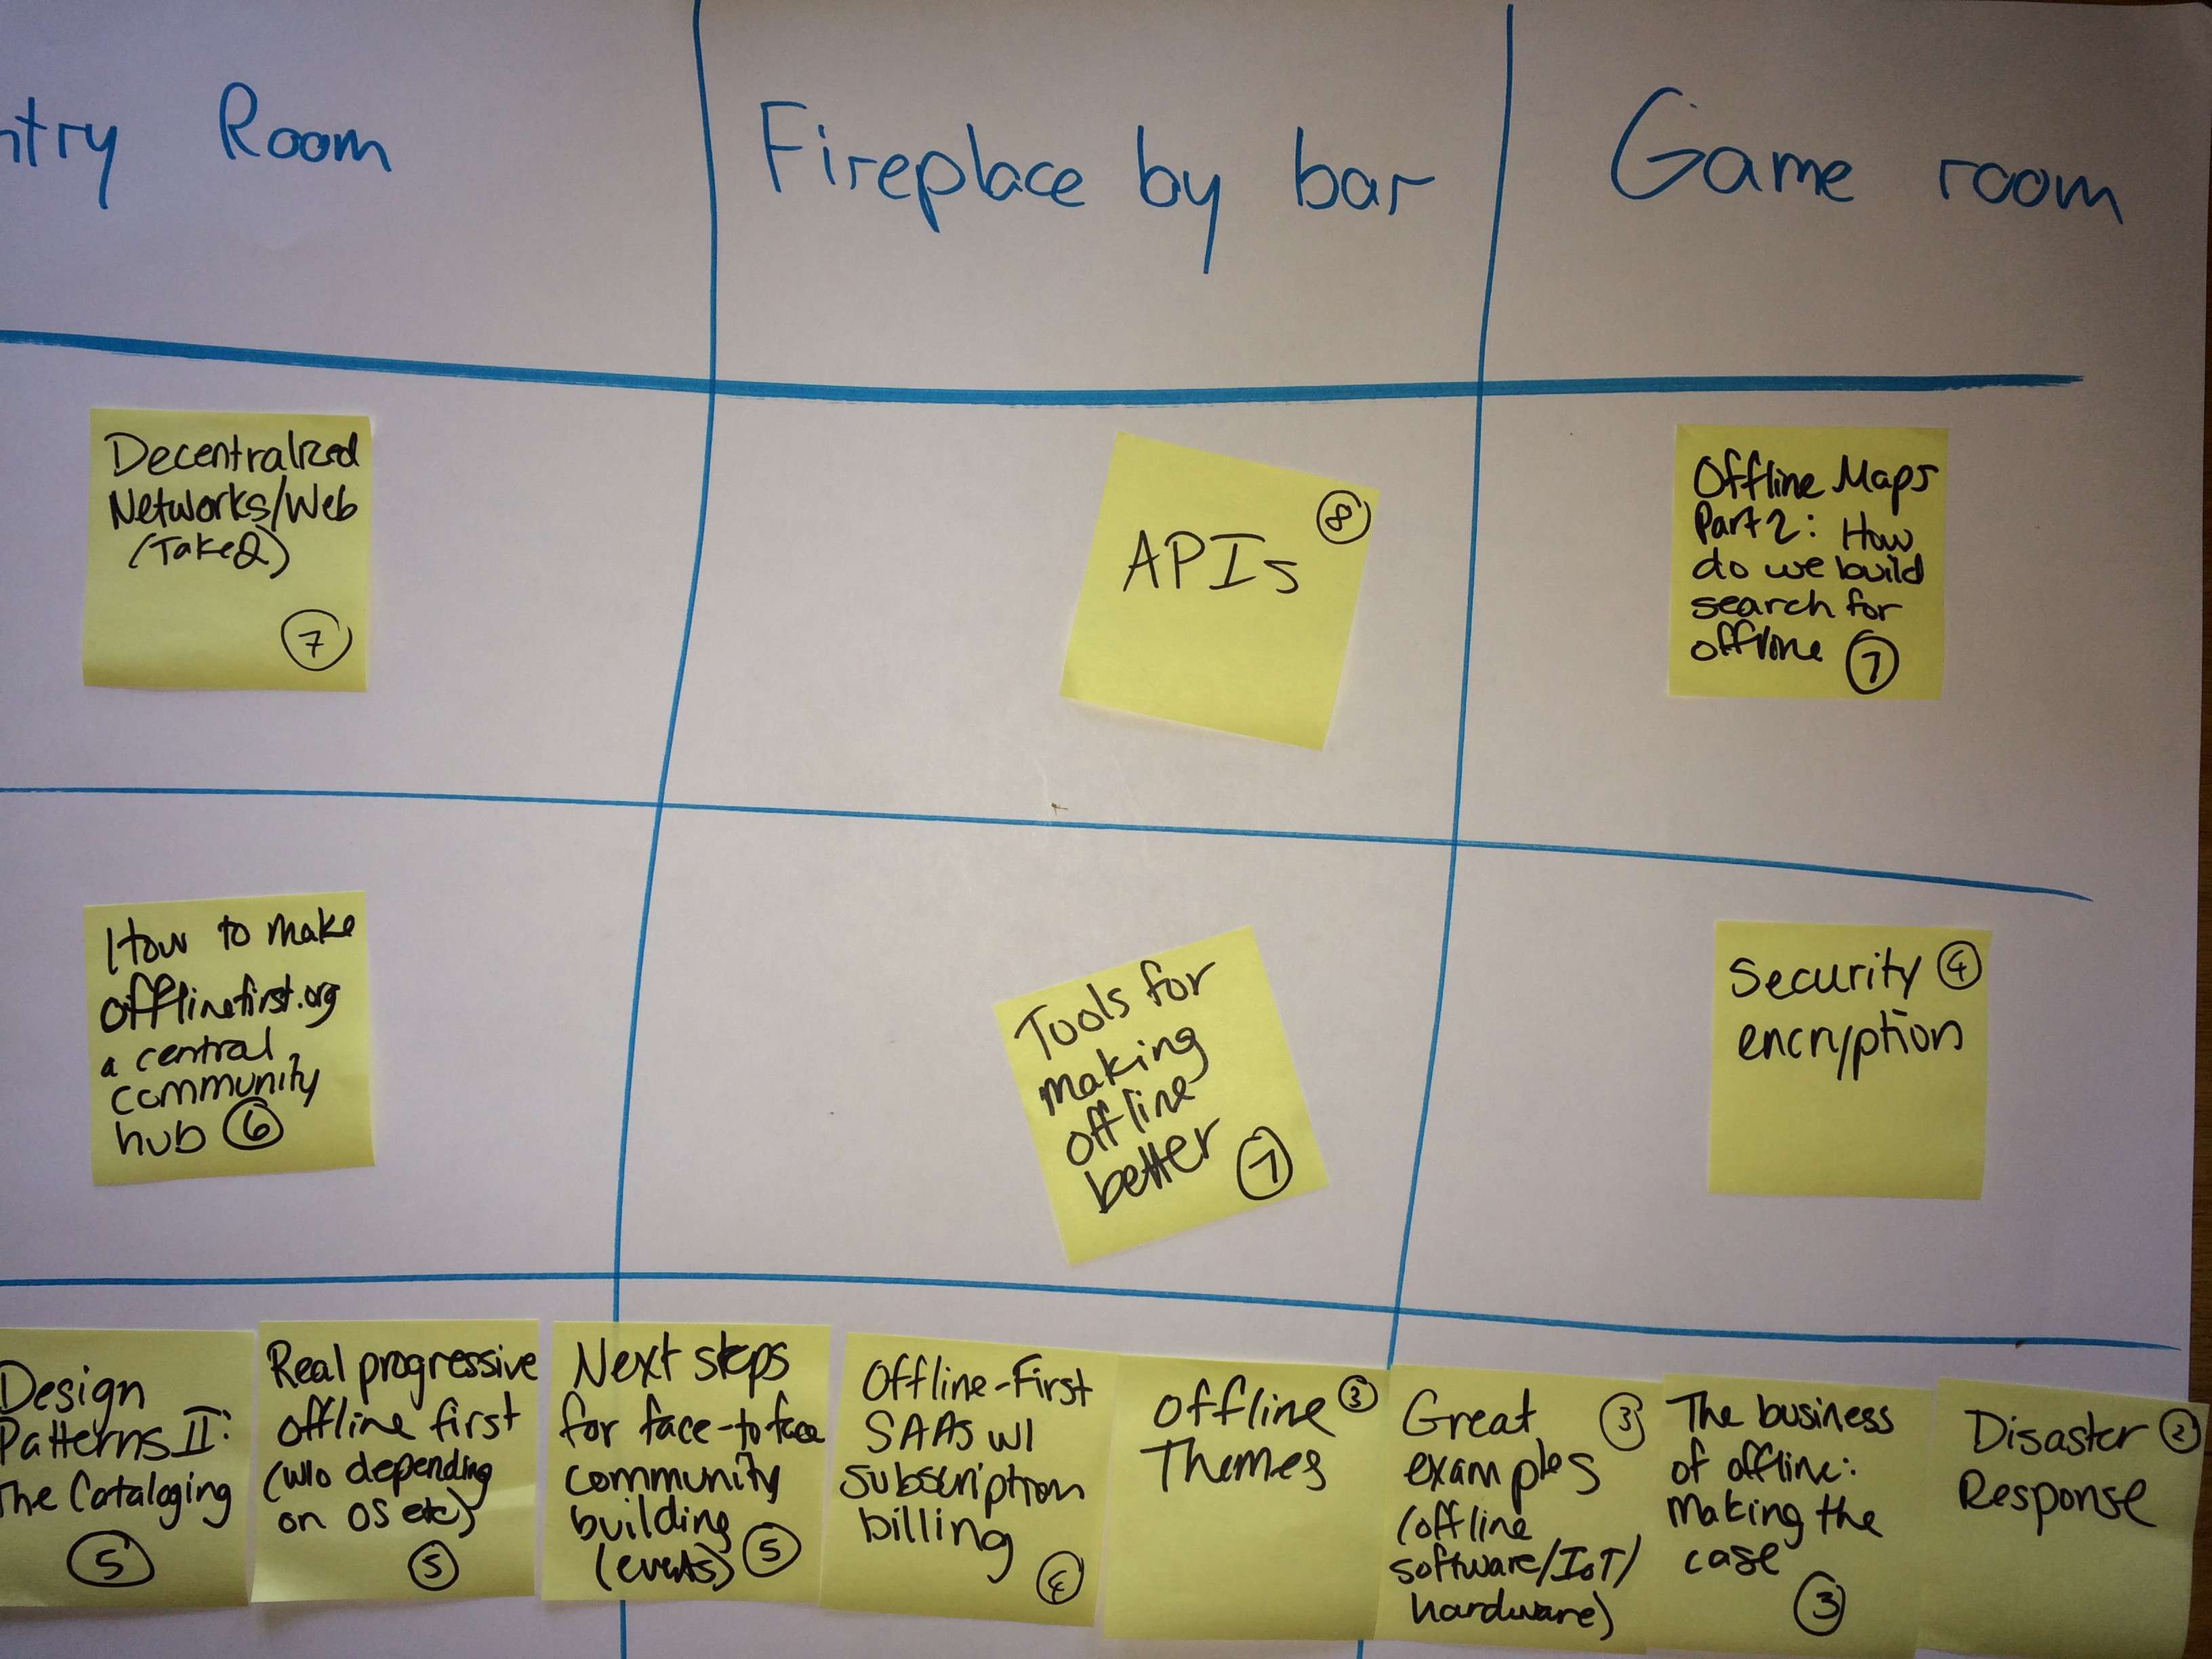 ntry Room
Fireplace by bar
Game room
Decentralized
Networks/Web
(Take2)
7
8
APIs
Offline Maps
Part 2: How
do we build
search for
offline 7
How to make
offlinefirst.org
a central
community
hub 6
Tools for
making
offline
better 7
Security 4
encryption
Design
Patterns II:
The Cataloging
5
Real progressive
offline first
(w/o depending
on OS etc)
5
Next steps
for face-to face
community
building
(events) 5
Offline-First
SAAS w/
subscription
billing
Offline 3
Themes
Great 3
examples
(offline
software/IoT/
hardware)
The business
of offline:
Making the
case
3
Disaster 2
Response